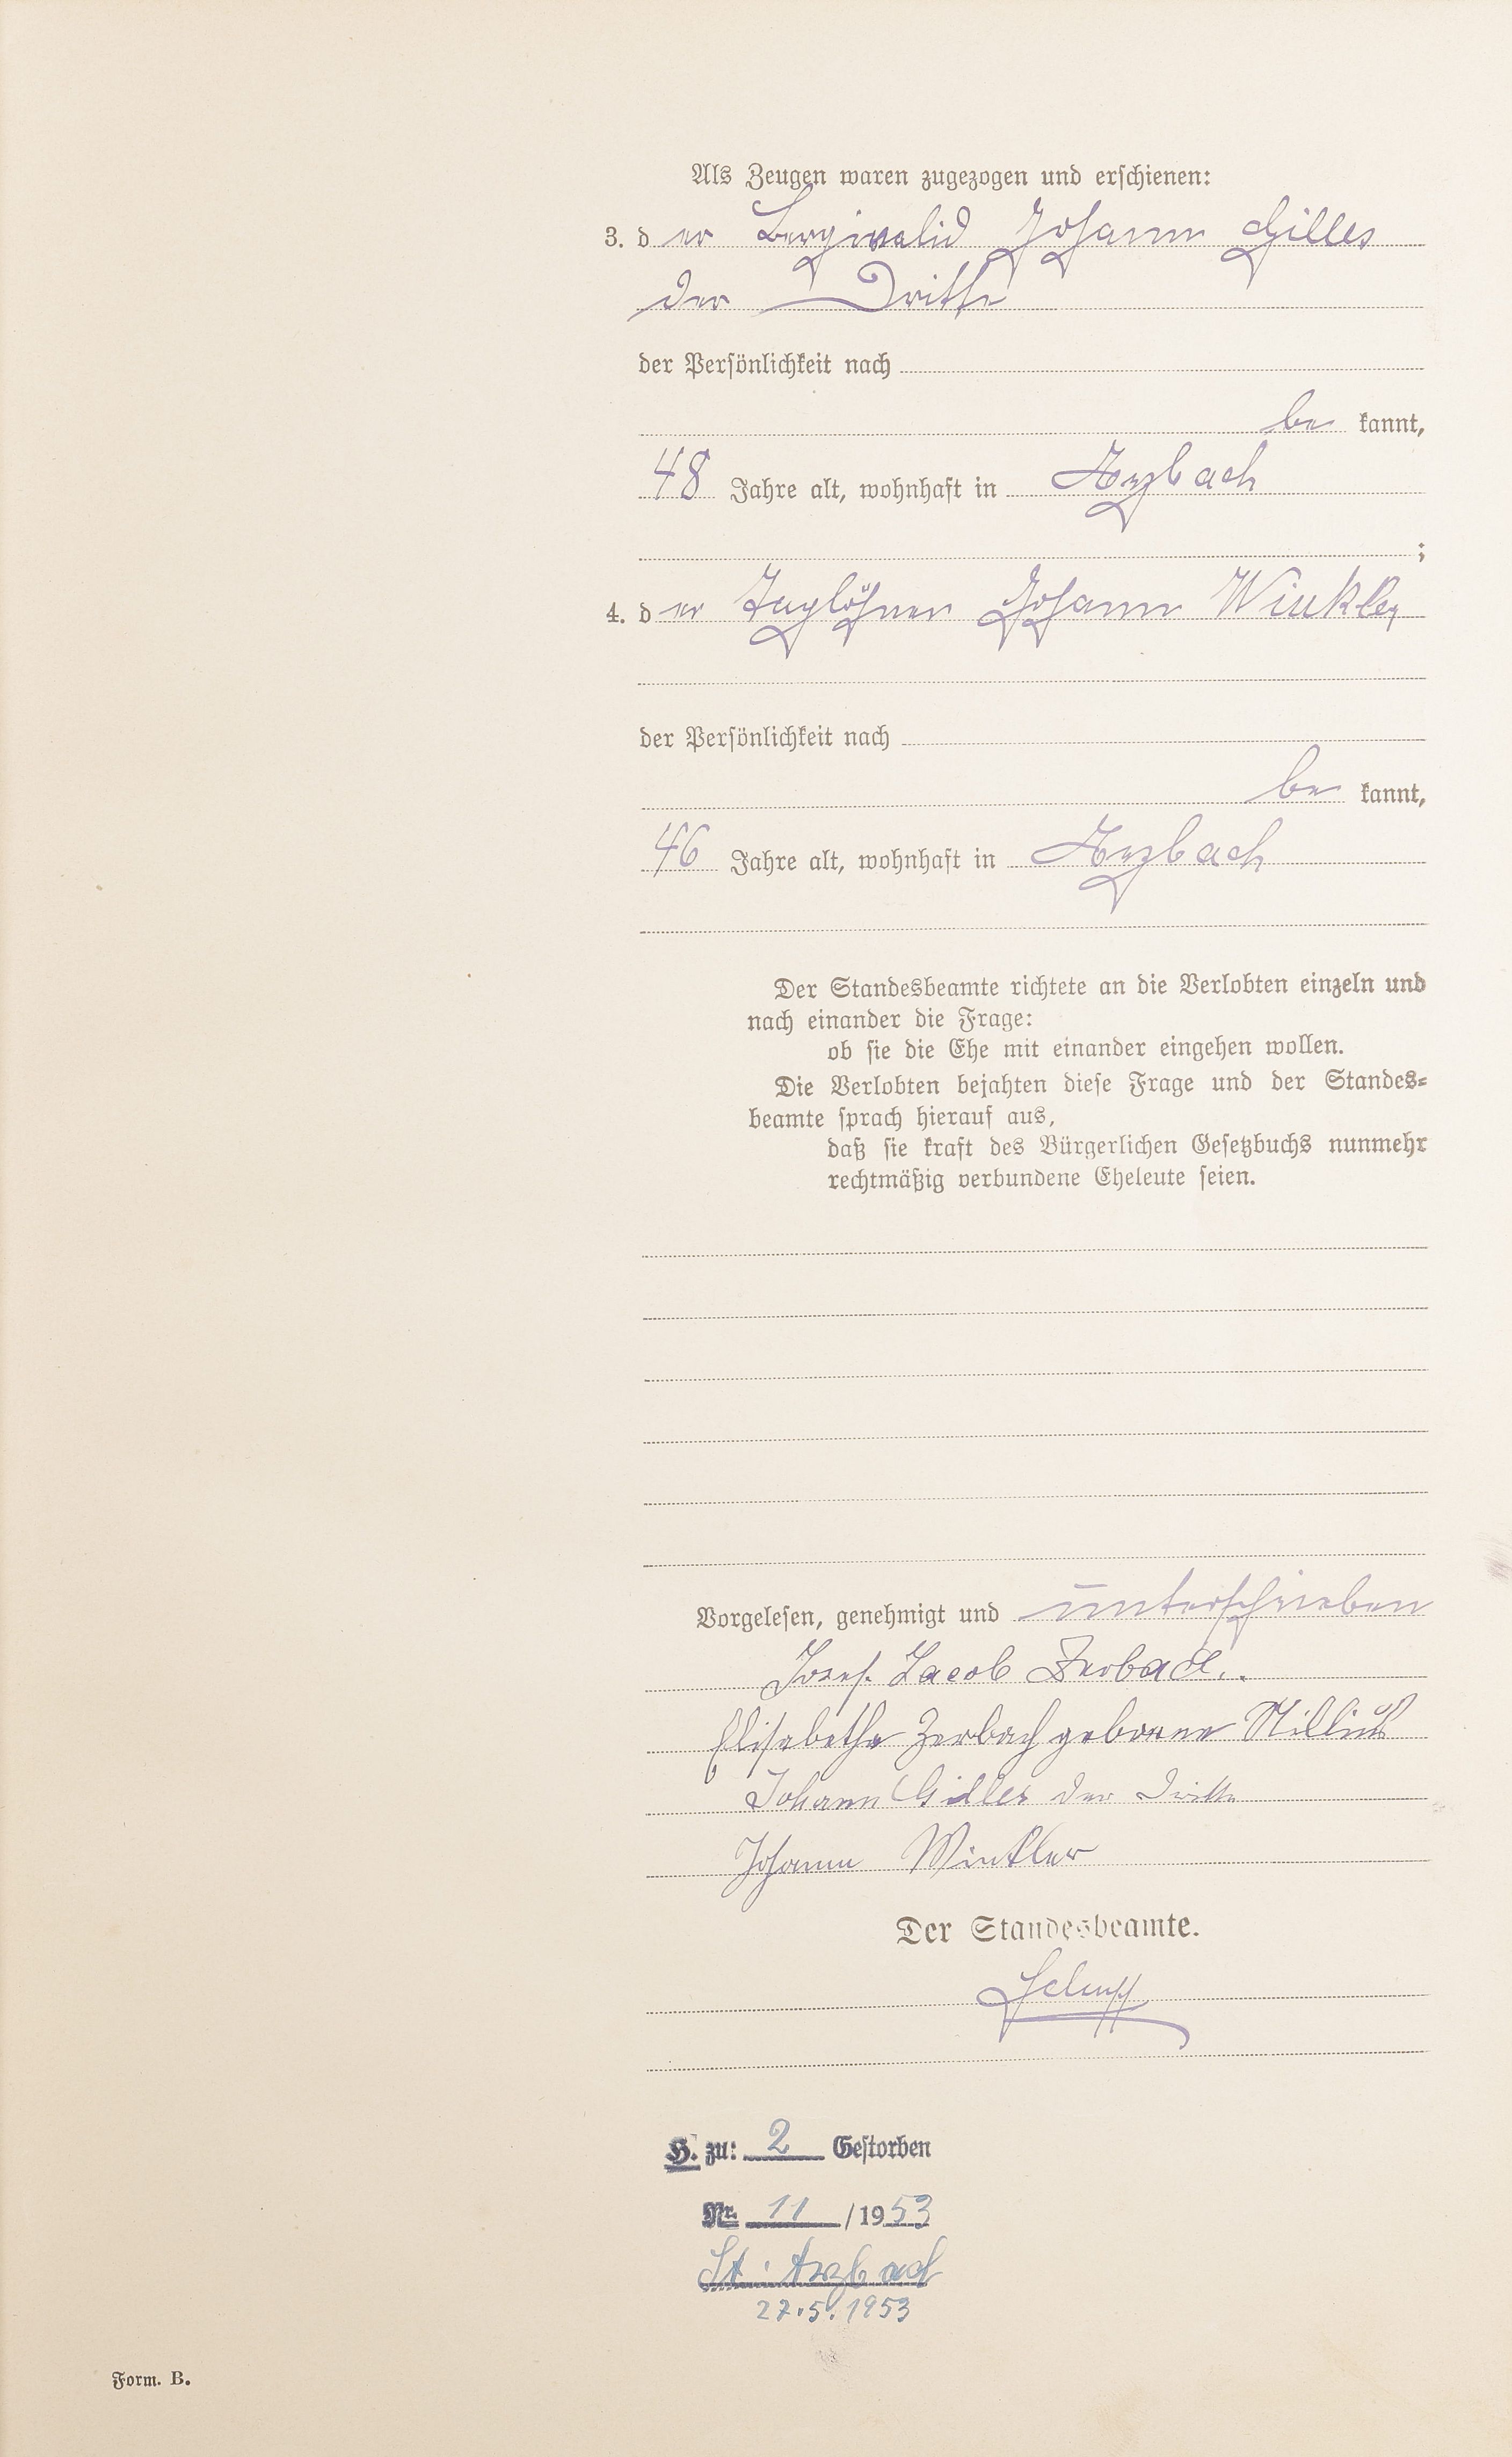 Als Zeugen waren zugezogen und erschienen:
3. der Berginvalid Johann Gilles
der Dritte
der Persönlichkeit nach
be kannt,
48 Jahre alt, wohnhaft in Arzbach
;
4. der Taglöhner Johann Winkler
der Persönlichkeit nach
be kannt,
46 Jahre alt, wohnhaft in Arzbach
Der Standesbeamte richtete an die Verlobten einzeln und
nach einander die Frage:
ob sie die Ehe mit einander eingehen wollen.
Die Verlobten bejahten diese Frage und der Standes-
beamte sprach hierauf aus,
daß sie kraft des Bürgerlichen Gesetzbuchs nunmehr
rechtmäßig verbundene Eheleute seien.
Vorgelesen, genehmigt und unterschrieben
Josef Jacob Zerbach.
Elisabetha Zerbach geborene Millius
Johann Gilles der Dritte
Johann Winkler
Der Standesbeamte.
H. zu: 2 Gestorben
Nr. 11 /1953
St. Arzbach
27.5.1953
Form. B.